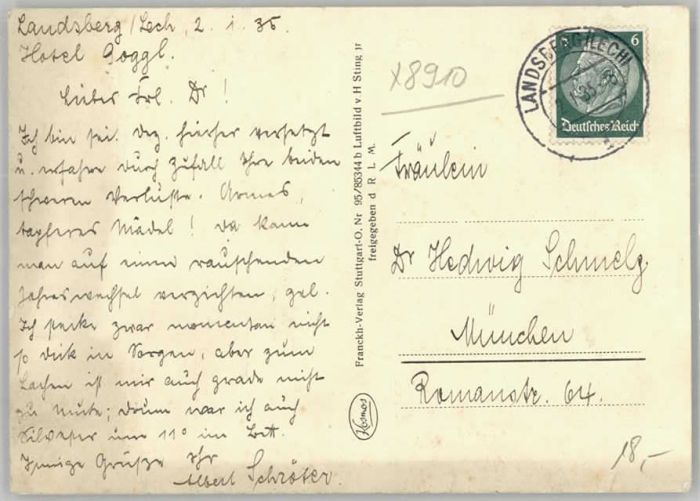 Landsberg/Lech, 2. 1. 35.
Hotel Goggl.
Liebes Frl. Dr!
Ich bin sei. Dez. hierher versetzt
u. erfahre durch Zufall Ihre beiden
schweren Verluste. Armes,
tapferes Mädel! Da kann
man auf einen rauschenden
Jahreswechsel verzichten, gel.
Ich stecke zwar momentan nicht
so dick in Sorgen, aber zum
Lachen ist mir auch grade nicht
zu Mute; drum war ich auch
Silvester um 11° im Bett.
Innige Grüße Ihr
Albert Schröter.
Franckh-Verlag Stuttgart-O. Nr 95/85344 b Luftbild v. H Sting jr
freigegeben d R L M.
Kosmos
x8910
LANDSBERG (LECH)
6
Deutsches Reich
Fräulein
Dr Hedwig Schmelz
München
Romanstr. 64.
18,-